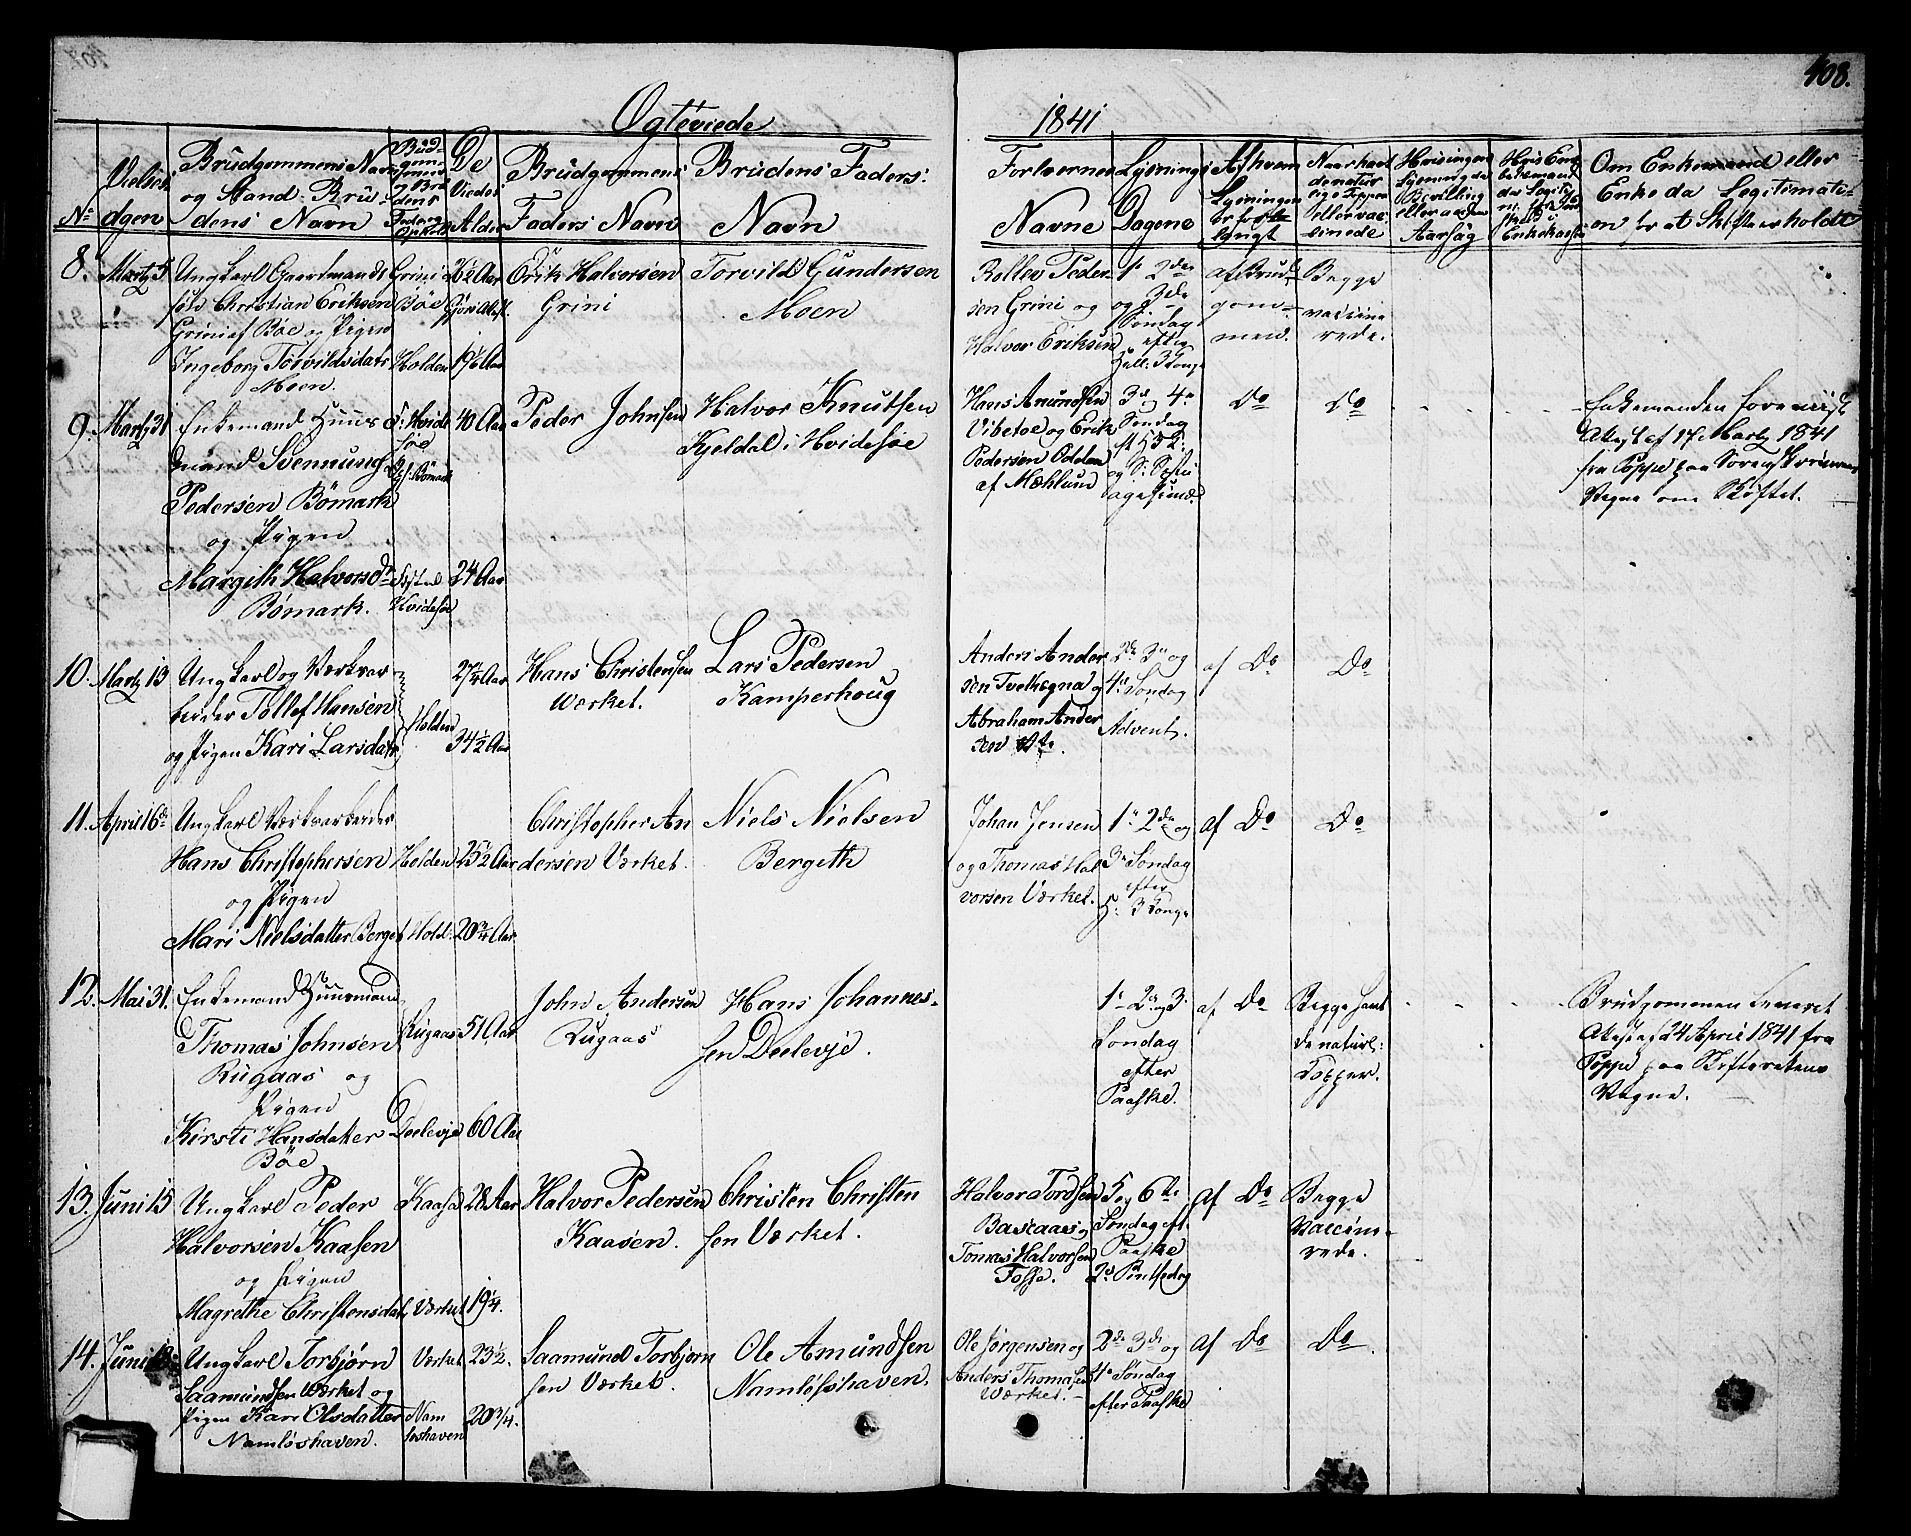 408.
Ægteviede
1841
No
Vielses
dagen
Brudgommens Navn
og Stand. Bru-
dens Navn
De
Viedes
Alder
Brudgommens
Faders Navn
Brudens Faders
Navn
Forlovernes
Navne
Lysnings
Dagene
Af hvem
Lysningen
er forlangt
8.
Martz 5
Ungkarl Gaardmands
søn Christian Eriksen
Grini af Bøe og Pigen
Ingeborg Torvildsdatr
Moen.
Grini
Bøe
Holden
19 1/6 Aar
Erik Halvorsen
Grini
Torvild Gundersen
Moen
Rollev Peder
sen Grini og
Halvor Eriksen
1e 2den
og 3die
Søndag
efter
Hell. 3 Kong.
af Brud
gom-
men.
Begge
vaccine
rede.
9.
Martz 31
Enkemand Huus
mand Svennung
Pedersen Bömark
og Pigen
Margith Halvorsdr
Bömark.
Hvide
søe
Bömark
Hvidesøe
40 Aar
24 Aar
Peder Johnsen
Halvor Knutsen
Kjeldal i Hvidesøe
Hans Amundsen
Vibetoe og Erik
Pedersen Odden
af Mæhlum
3e og 4e
Søndag
Do
Do
Enkemanden foreviist
Attest af 17 Martz 1841
fra Poppe paa Sorenskriverens
Vegne om Skiftet.
10.
Martz 13
Ungkarl og Værksar
beider Tollef Hansen
og Pigen Kari Larsdatr
Holden
27 1/4 Aar
34 1/2 Aar
Hans Christensen
Værket.
Lars Pedersen
Kamperhoug
Anders Ander
sen Tvetægna og
Abraham Ander
sen
2de 3e og
4e Søndag
Advent.
af Do
Do
11.
April 16de
Ungkarl Værksarbeider
Hans Christophersen
og Pigen
Mari Nielsdatter Berget
Holden
Hold:
25 1/2 Aar
20 3/4 Aar
Christopher An
dersen Værket.
Niels Nielsen
Bergeth
Johan Jensen
og Thomas Hal
vorsen Værket.
1e 2den og
3e Søndag
efter
H: 3 Konge
af Do
Do
12.
Mai 31.
Enkemand Huusmand
Thomas Johnsen
Rugaas og
Pigen
Kirsti Hansdatter
Bøe
Rugaas
Deelevje
51 Aar
60 Aar
John Andersen
Rugaas
Hans Johannes-
sen Deelevje.
1e 2den og 3.
Søndag
efter
Paaske.
af Do
Begge havt
de naturl:
Kopper.
Brudgommen leveret
Attest af 24 April 1841 fra
Poppe paa Skifterettens
Vegne.
13.
Juni 15
Ungkarl Peder
Halvorsen Kaasen
og Pigen
Magrethe Christensdatr
Kaasa
Værket
28 Aar
19 1/4.
Halvor Pedersen
Kaasen.
Christen Christen
sen Værket.
Halvor Tordsen
Baskaas og
Tomas Halvorsen
Fosse.
5 og 6te
Søndag eft
Paaske
2d Pintsedag
af Do
Begge
Vaccine-
rede.
14.
Juni
Ungkarl Torbjørn
Saamundsen Værket og
Pigen Kari Olsdatter
Namløshaven.
Værket
Nam
løshaven
23 1/2.
20 3/4.
Saamund Torbjørn
sen Værket.
Ole Amundsen
Namløshaven.
Ole Jørgensen og
Anders Thomasen
Værket.
2de 3de og
4e Søndag
efter Paaske
af Do
Do.